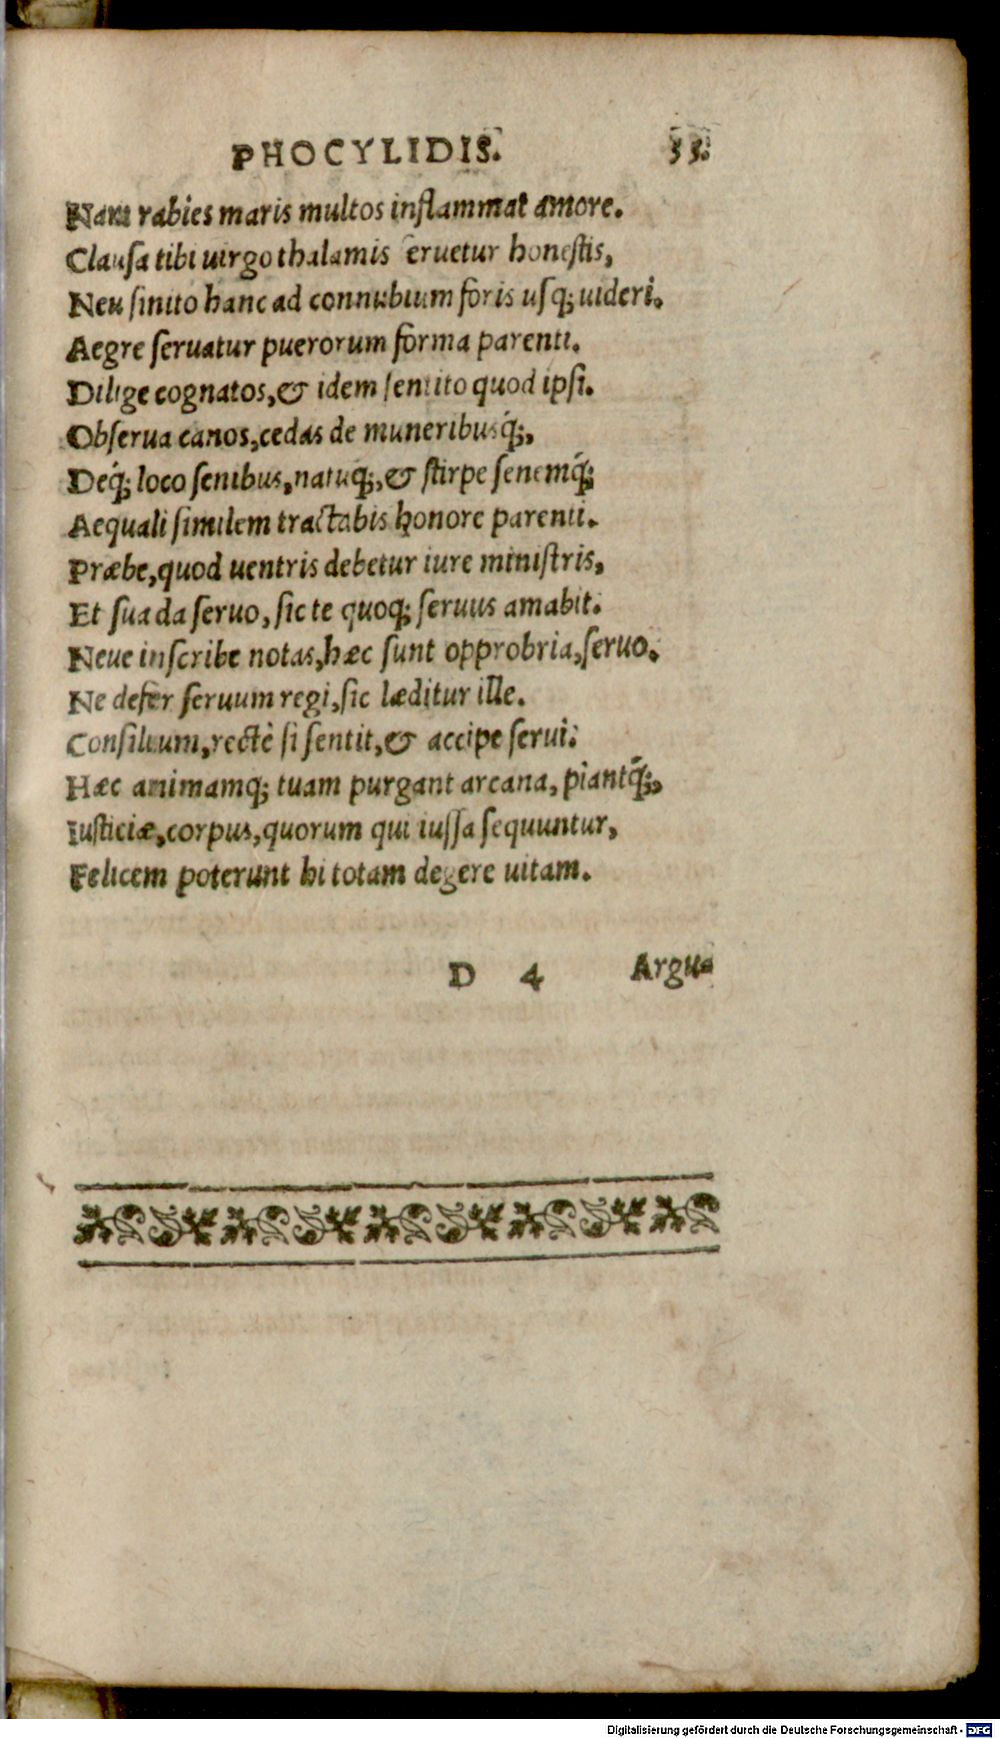 PHOCYLIDIS. 55.
Nam rabies maris multos inflammat amore.
Clausa tibi uirgo thalamis seruetur honestis,
Neu sinito hanc ad connubium foris usq; uideri.
Aegre seruatur puerorum forma parenti.
Dilige cognatos, & idem sentito quod ipsi.
Obserua canos, cedas de muneribusq́;,
Deq́; loco senibus, natuq́;, & stirpe senemq́;
Aequali similem tractabis honore parenti.
Præbe, quod uentris debetur iure ministris,
Et sua da seruo, sic te quoq; seruus amabit.
Neue inscribe notas, hæc sunt opprobria, seruo.
Ne defer seruum regi, sic læditur ille.
Consilium, rectè si sentit, & accipe serui.
Hæc animamq; tuam purgant arcana, piantq́;,
Iusticiæ, corpus, quorum qui iussa sequuntur,
Felicem poterunt hi totam degere uitam.
D 4 Argu-
Digitalisierung gefördert durch die Deutsche Forschungsgemeinschaft - DFG